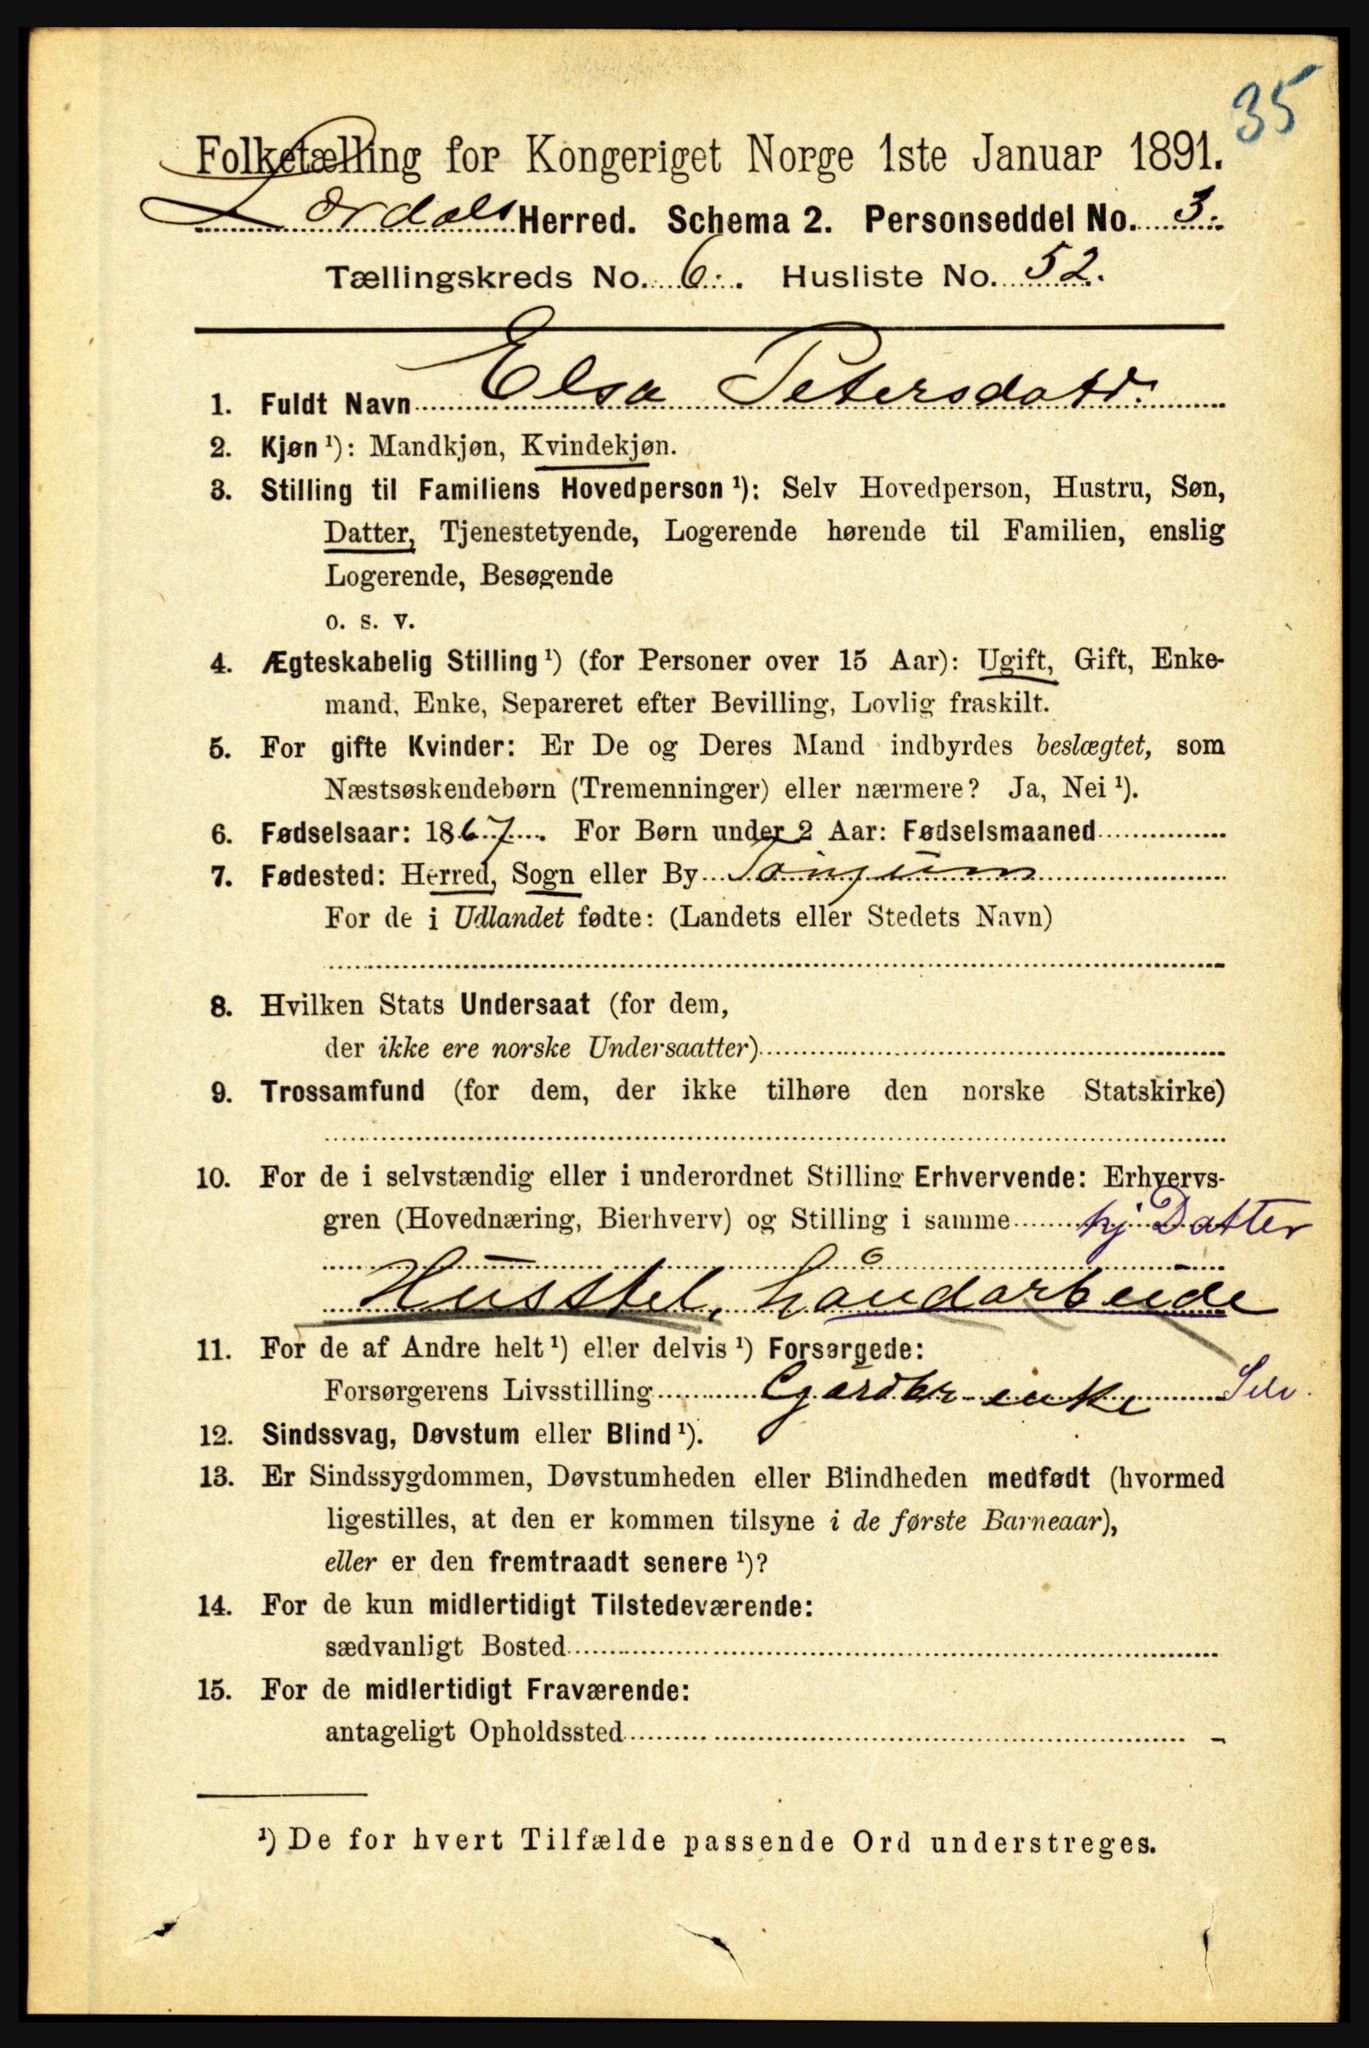 35
Folketælling for Kongeriget Norge 1ste Januar 1891.
Lærdals Herred. Schema 2. Personseddel No. 3.
Tællingskreds No. 6. Husliste No. 52.
1. Fuldt Navn Elsa Petersdatr.
2. Kjøn ¹): Mandkjøn, Kvindekjøn.
3. Stilling til Familiens Hovedperson ¹): Selv Hovedperson, Hustru, Søn,
Datter, Tjenestetyende, Logerende hørende til Familien, enslig
Logerende, Besøgende
o. s. v.
4. Ægteskabelig Stilling ¹) (for Personer over 15 Aar): Ugift, Gift, Enke-
mand, Enke, Separeret efter Bevilling, Lovlig fraskilt.
5. For gifte Kvinder: Er De og Deres Mand indbyrdes beslægtet, som
Næstsøskendebørn (Tremenninger) eller nærmere? Ja, Nei ¹).
6. Fødselsaar: 1867. For Børn under 2 Aar: Fødselsmaaned
7. Fødested: Herred, Sogn eller By Tønjum
For de i Udlandet fødte: (Landets eller Stedets Navn)
8. Hvilken Stats Undersaat (for dem,
der ikke ere norske Undersaatter)
9. Trossamfund (for dem, der ikke tilhøre den norske Statskirke)
10. For de i selvstændig eller i underordnet Stilling Erhvervende: Erhvervs-
gren (Hovednæring, Bierhverv) og Stilling i samme hj Datter
Husstel, håndarbeide
11. For de af Andre helt ¹) eller delvis ¹) Forsørgede:
Forsørgerens Livsstilling Gårdbr enke Selv.
12. Sindssvag, Døvstum eller Blind ¹).
13. Er Sindssygdommen, Døvstumheden eller Blindheden medfødt (hvormed
ligestilles, at den er kommen tilsyne i de første Barneaar),
eller er den fremtraadt senere ¹)?
14. For de kun midlertidigt Tilstedeværende:
sædvanligt Bosted
15. For de midlertidigt Fraværende:
antageligt Opholdssted
¹) De for hvert Tilfælde passende Ord understreges.